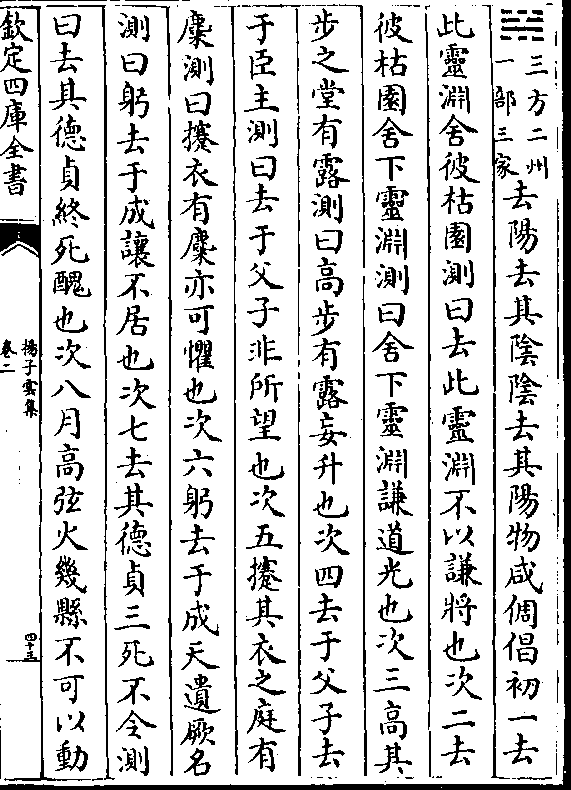 三方二州
一部三家
去陽去其陰陰去其陽物咸倜倡初一去
此靈淵舍彼枯園測曰去此靈淵不以謙將也次二去
彼枯園舍下靈淵測曰舍下靈淵謙道光也次三高其
步之堂有露測曰高步有露妄升也次四去于父子去
于臣主測曰去于父子非所望也次五攓其衣之庭有
麋測曰攓衣有麋亦可懼也次六躬去于成天遺厥名
測曰躬去于成讓不居也次七去其德貞三死不令測
曰去其德貞終死醜也次八月高弦火幾縣不可以動
欽定四庫全書
揚子雲集
卷二
四十五